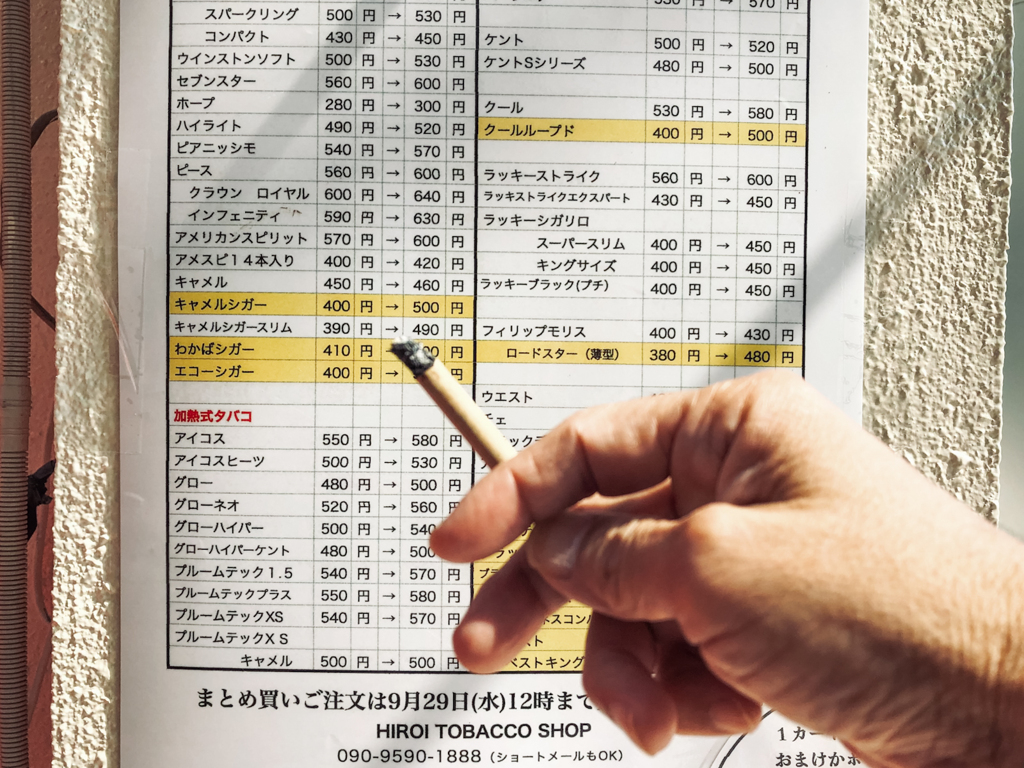 スパークリング 500 円 → 530 円
コンパクト 430 円 → 450 円
ウインストンソフト 500 円 → 530 円
セブンスター 560 円 → 600 円
ホープ 280 円 → 300 円
ハイライト 490 円 → 520 円
ピアニッシモ 540 円 → 570 円
ピース 560 円 → 600 円
クラウン ロイヤル 600 円 → 640 円
インフェニティ 590 円 → 630 円
アメリカンスピリット 570 円 → 600 円
アメスピ14本入り 400 円 → 420 円
キャメル 450 円 → 460 円
キャメルシガー 400 円 → 500 円
キャメルシガースリム 390 円 → 490 円
わかばシガー 410 円 円
エコーシガー 400 円 → 円
加熱式タバコ
アイコス 550 円 → 580 円
アイコスヒーツ 500 円 → 530 円
グロー 480 円 → 500 円
グローネオ 520 円 → 560 円
グローハイパー 500 円 → 540
グローハイパーケント 480 円 → 500
プルームテック1.5 540 円 → 570 円
プルームテックプラス 550 円 → 580 円
プルームテックXS 540 円 → 570 円
プルームテックX S
キャメル 500 円 → 500 円
530 円 → 570 円
ケント 500 円 → 520 円
ケントSシリーズ 480 円 → 500 円
クール 530 円 → 580 円
クールループド 400 円 → 500 円
ラッキーストライク 560 円 → 600 円
ラッキストライクエクスパート 430 円 → 450 円
ラッキーシガリロ
スーパースリム 400 円 → 450 円
キングサイズ 400 円 → 450 円
ラッキーブラック(プチ) 400 円 → 450 円
フィリップモリス 400 円 → 430 円
ロードスター（薄型） 380 円 → 480 円
ウエスト
チェ
ベストキング
まとめ買いご注文は9月29日(水)12時まで
HIROI TOBACCO SHOP
090-9590-1888（ショートメールもOK）
1カー
おまけか